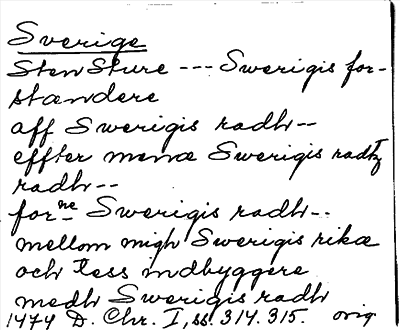 Sverige
Sten Sture --- Swerigis for-
stændere
aff Swerigis radh--
effter menæ Swerigis radz
radh--
forne Swerigis radh--
mellom migh Swerigis rikæ
och tess inbyggere
medh Swerigis radh
1474 D. Chr. I, ss. 314. 315. orig